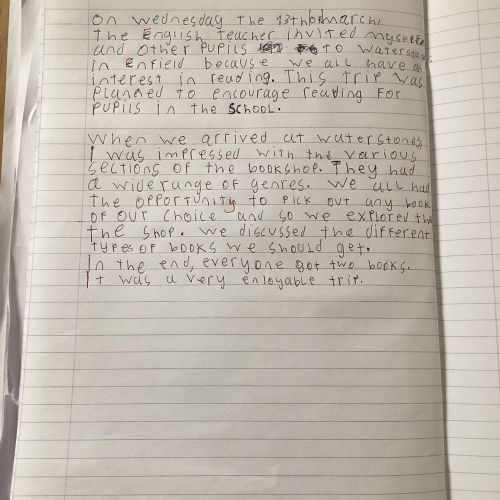 On wednesday the 13th of march,
the English teacher invited myself
and other pupils to Waterstones
in Enfield because we all have an
interest in reading. This trip was
planned to encourage reading for
pupils in the school.
When we arrived at waterstones,
I was impressed with the various
sections of the bookshop. They had
a wide range of genres. We all had
the opportunity to pick out any book
of our choice and so we explored the
the shop. We discussed the different
types of books we should get.
In the end, everyone got two books.
It was a very enjoyable trip.